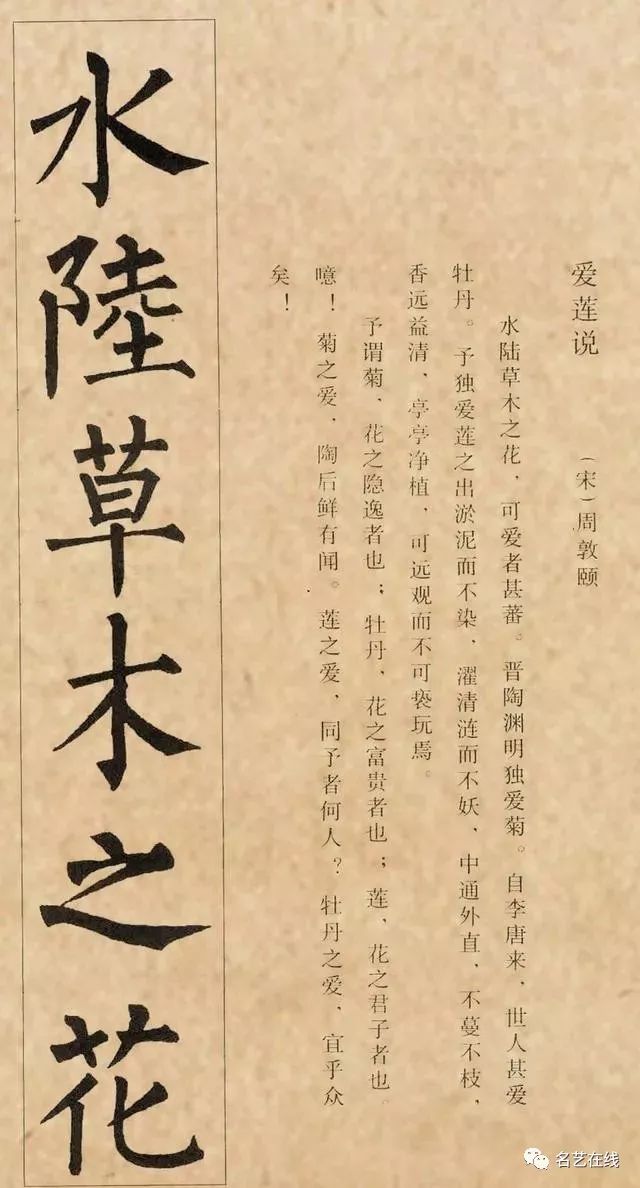 爱莲说
（宋）周敦颐
水陆草木之花，可爱者甚蕃。晋陶渊明独爱菊。自李唐来，世人甚爱
牡丹。予独爱莲之出淤泥而不染，濯清涟而不妖，中通外直，不蔓不枝，
香远益清，亭亭净植，可远观而不可亵玩焉。
予谓菊，花之隐逸者也；牡丹，花之富贵者也；莲，花之君子者也。
噫！菊之爱，陶后鲜有闻。莲之爱，同予者何人？牡丹之爱，宜乎众
矣！
水陸草木之花
名艺在线